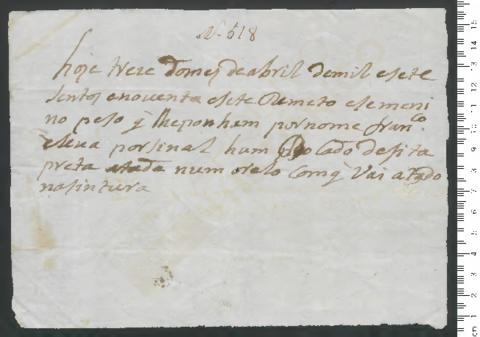 N. 518
hoje treze do mes de abril de mil e sete
sentos e noventa e sete Remeto este meni
no peso q̃ lhe ponham por nome fran^co
e leva por sinal hum bocado de fita
preta atada num orelo com q̃ vai atado
na sintura